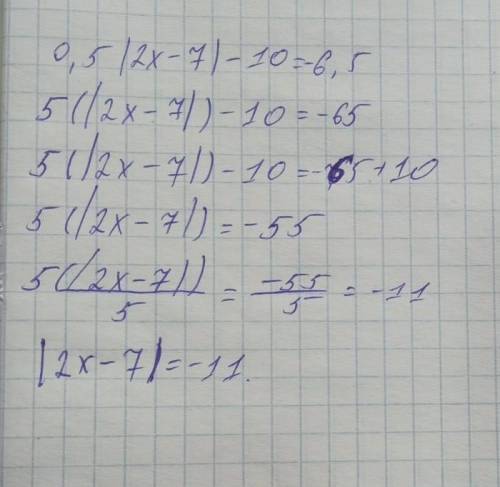 0,5|2x-7|-10=-6,5
5(|2x-7|)-10=-65
5(|2x-7|)-10=-65+10
5(|2x-7|)=-55
5(|2x-7|)/5 = -55/5 = -11
|2x-7|=-11.